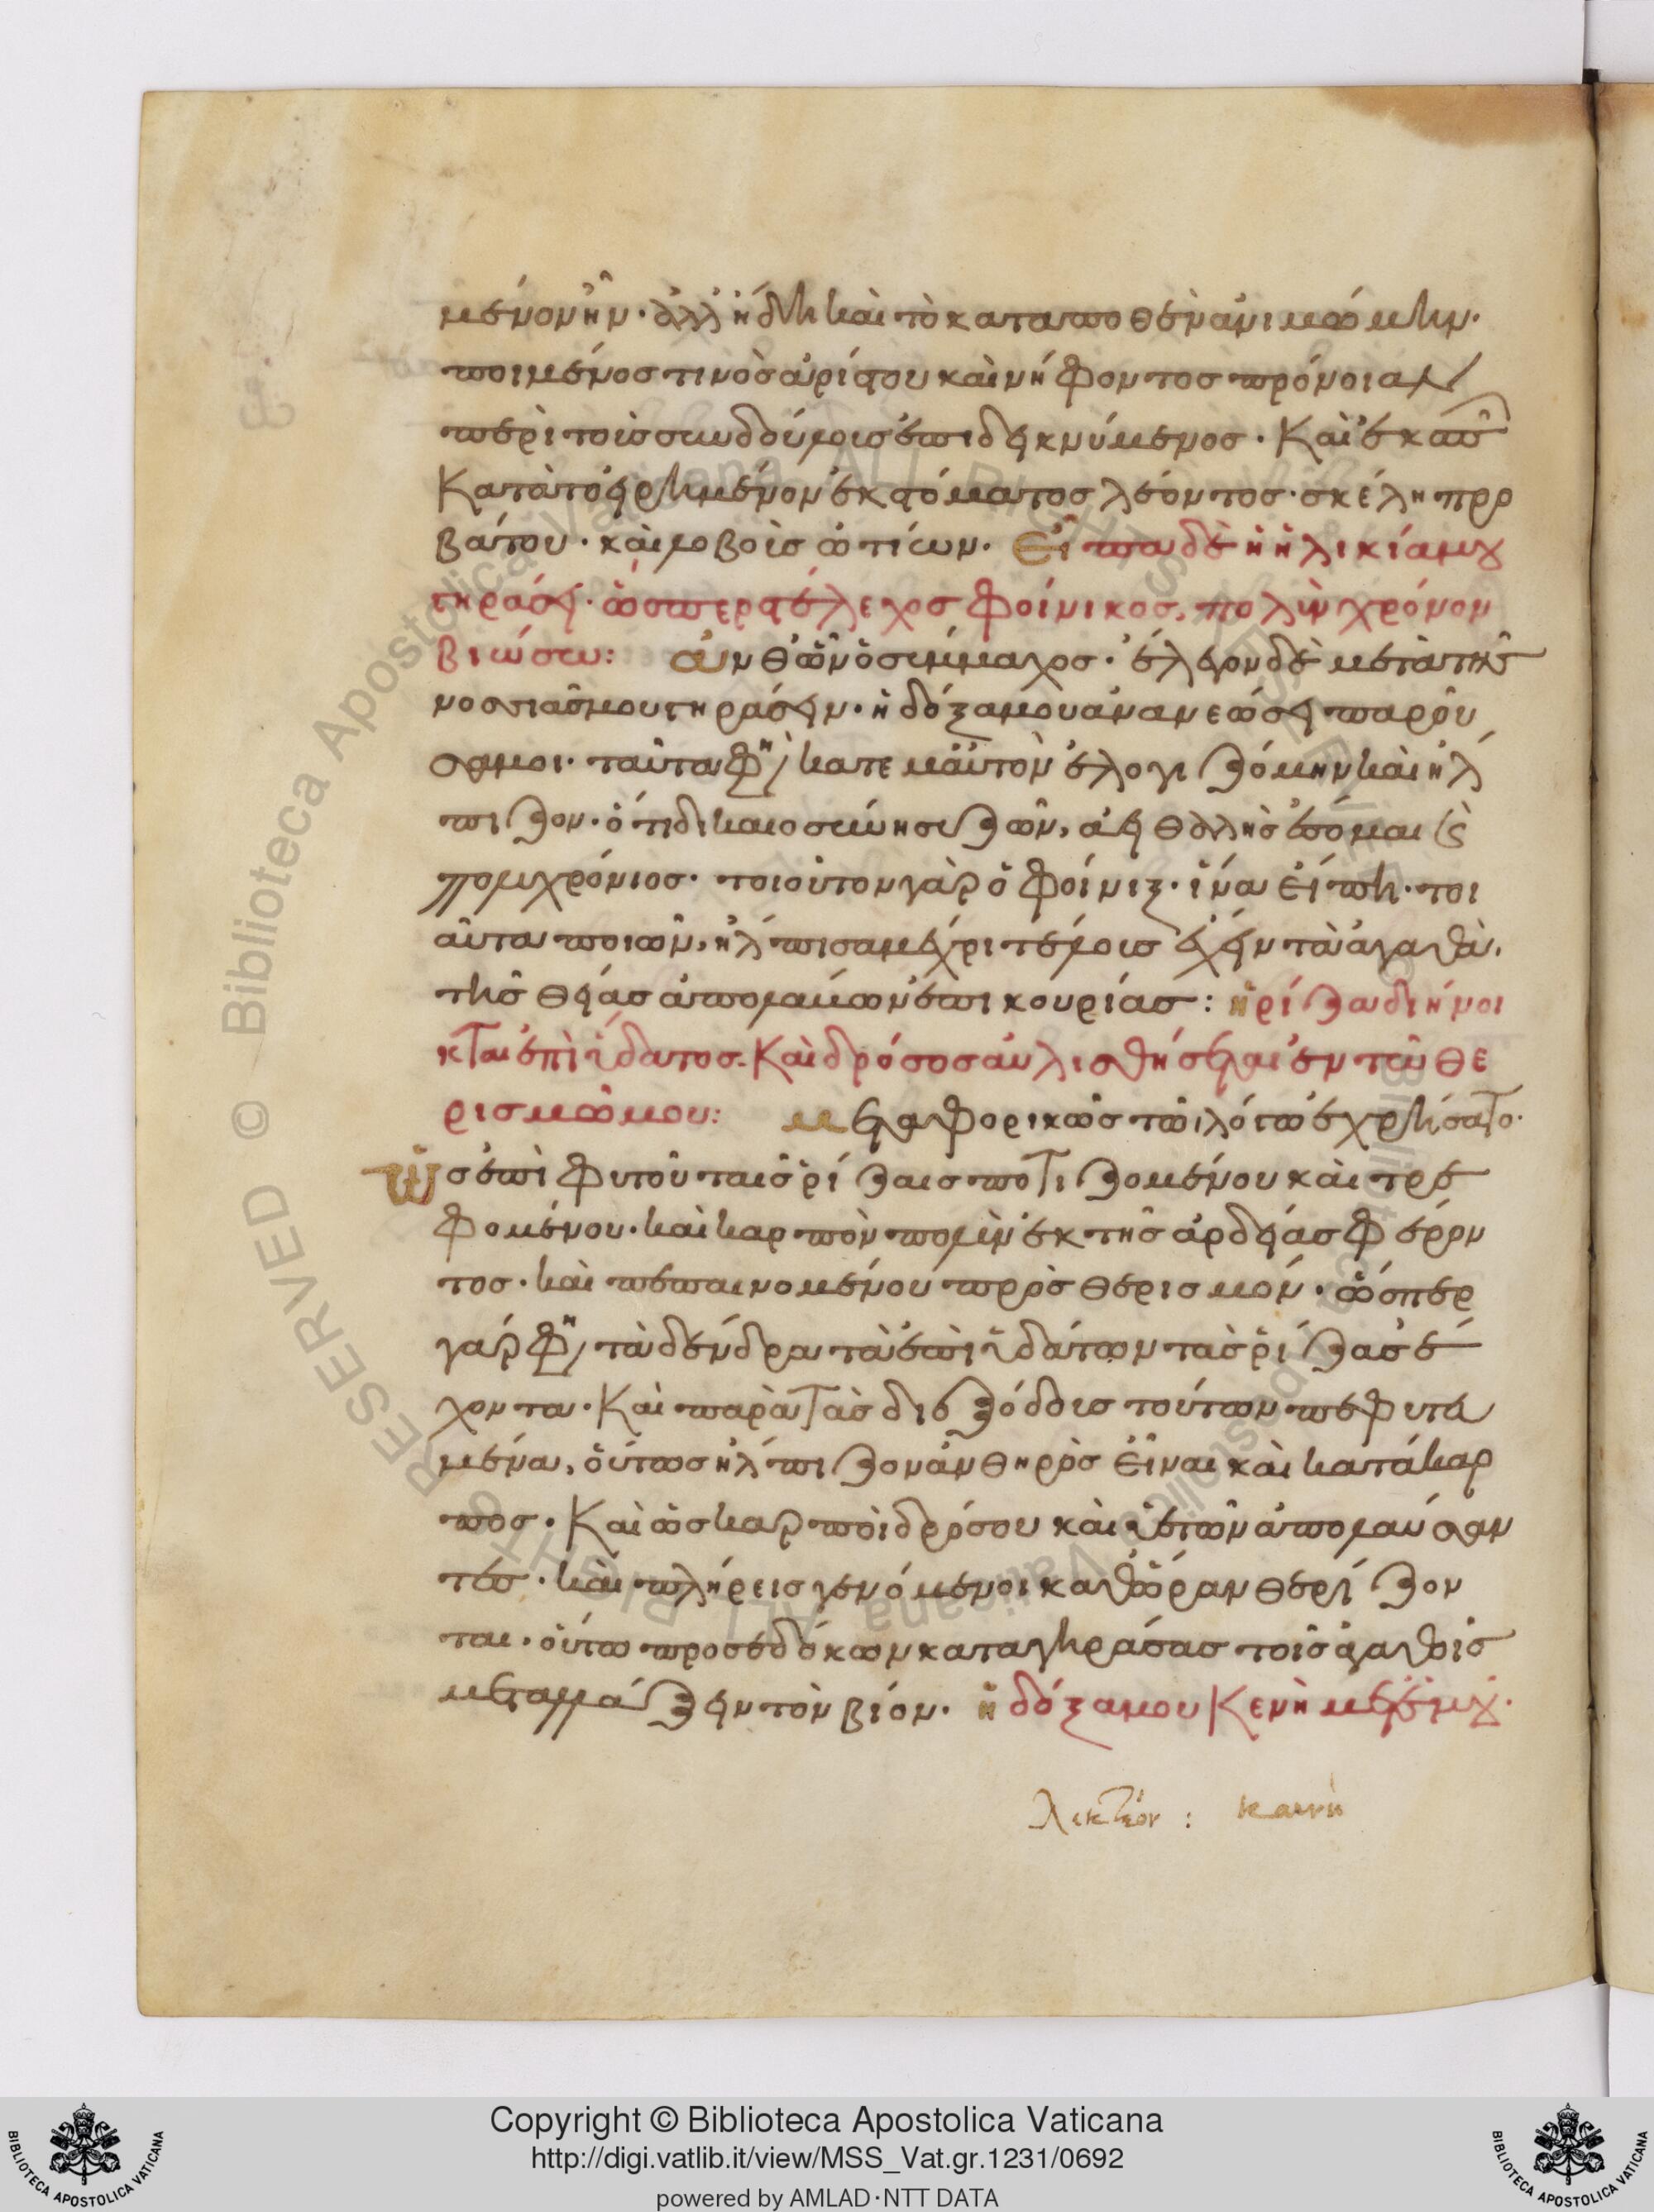 μένον ἦν· ἀλλ' ἤδη καὶ τὸ καταποθὲν ἀνιμώμην·
ποιμένος τινὸς ἀρίστου καὶ νήφοντος πρόνοιαν
περὶ τοῖς συνδούλοις ἐπιδεικνύμενος· καὶ ἐκσπῶν
κατὰ τὸ εἰρημένον ἐκ στόματος λέοντος· σκέλη προ
βάτου· καὶ λοβοῖς ὠτίων· Εἶπα δὲ ἡ ἡλικία μου
γηράσει· ὥσπερ στέλεχος φοίνικος, πολὺν χρόνον
βιώσω: ἀνθ' ὧν ὁ σύμμαχος· ἔλεγον δὲ μετὰ τῆς
νοσσιᾶς μου γηράσειν· ἡ δόξα μου ἀνανεώσει παροῦ
σα μοι· ταῦτα φη κατ' ἐμαυτὸν ἐλογιζόμην καὶ ἤλ
πιζον· ὅτι δικαιοσύνης ζῶν, ἀειθαλὴς ἔσομαι καὶ
πολυχρόνιος· τοιοῦτον γὰρ ὁ φοίνιξ· ἵνα εἴπη· τοι
αῦτα ποιῶν, ἤλπισα μέχρι τέλους ἔχειν τὰ ἀγαθὰ,
τῆς θείας ἀπολαύων ἐπικουρίας: ἡ ῥίζα διήνοι
κται ἐπὶ ὕδατος. Καὶ δρόσος αὐλισθήσεται ἐν τῶ θε
ρισμῶ μου: μεταφορικῶς τῶ λόγω ἐχρήσατο·
Ὡς ἐπὶ φυτοῦ ταῖς ῥίζαις ποτιζομένου καὶ τρε
φομένου· καὶ καρπὸν πολὺν ἐκ τῆς ἀρδείας φέρον
τος· καὶ πεπαινομένου πρὸς θερισμόν· ὥσπερ
γάρ φη τὰ δένδρα τὰ ἐπὶ ὑδάτων τὰς ῥίζας ἔ
χοντα· Καὶ παρὰ τὰς διεξόδους τούτων πεφυτευ
μένα, οὕτως ἤλπιζον ἀνθηρὸς εἶναι καὶ κατάκαρ
πος· Καὶ ὡς καρποὶ δρόσου καὶ ὑετῶν ἀπολαύσαν
τες· καὶ πλήρεις γενόμενοι καθ' ὥραν θερίζον
ται· οὕτω προσεδόκων καταγηράσας τοῖς ἀγαθοῖς
μεταλλάξειν τὸν βίον· ἡ δόξα μου Κενὴ μετ' ἐμοῦ·
λεκτέον: καινὴ
Copyright © Biblioteca Apostolica Vaticana
http://digi.vatlib.it/view/MSS_Vat.gr.1231/0692
powered by AMLAD·NTT DATA